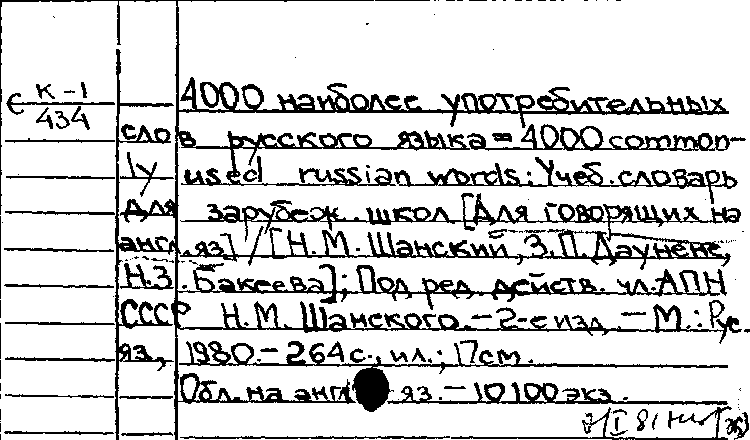 К-1
С 434
4000 наиболее употребительных
слов русского языка = 4000 common-
ly used russian words: Учеб. словарь
для зарубеж. школ [Для говорящих на
англ. яз] / [Н.М. Шанский, З.П. Даунене,
Н.З. Бакеева]; Под ред. действ. чл. АПН
СССР Н.М. Шанского. - 2-е изд. - М.: Рус.
яз, 1980. - 264 с., ил.; 17 см.
Обл. на англ яз. - 10100 экз.